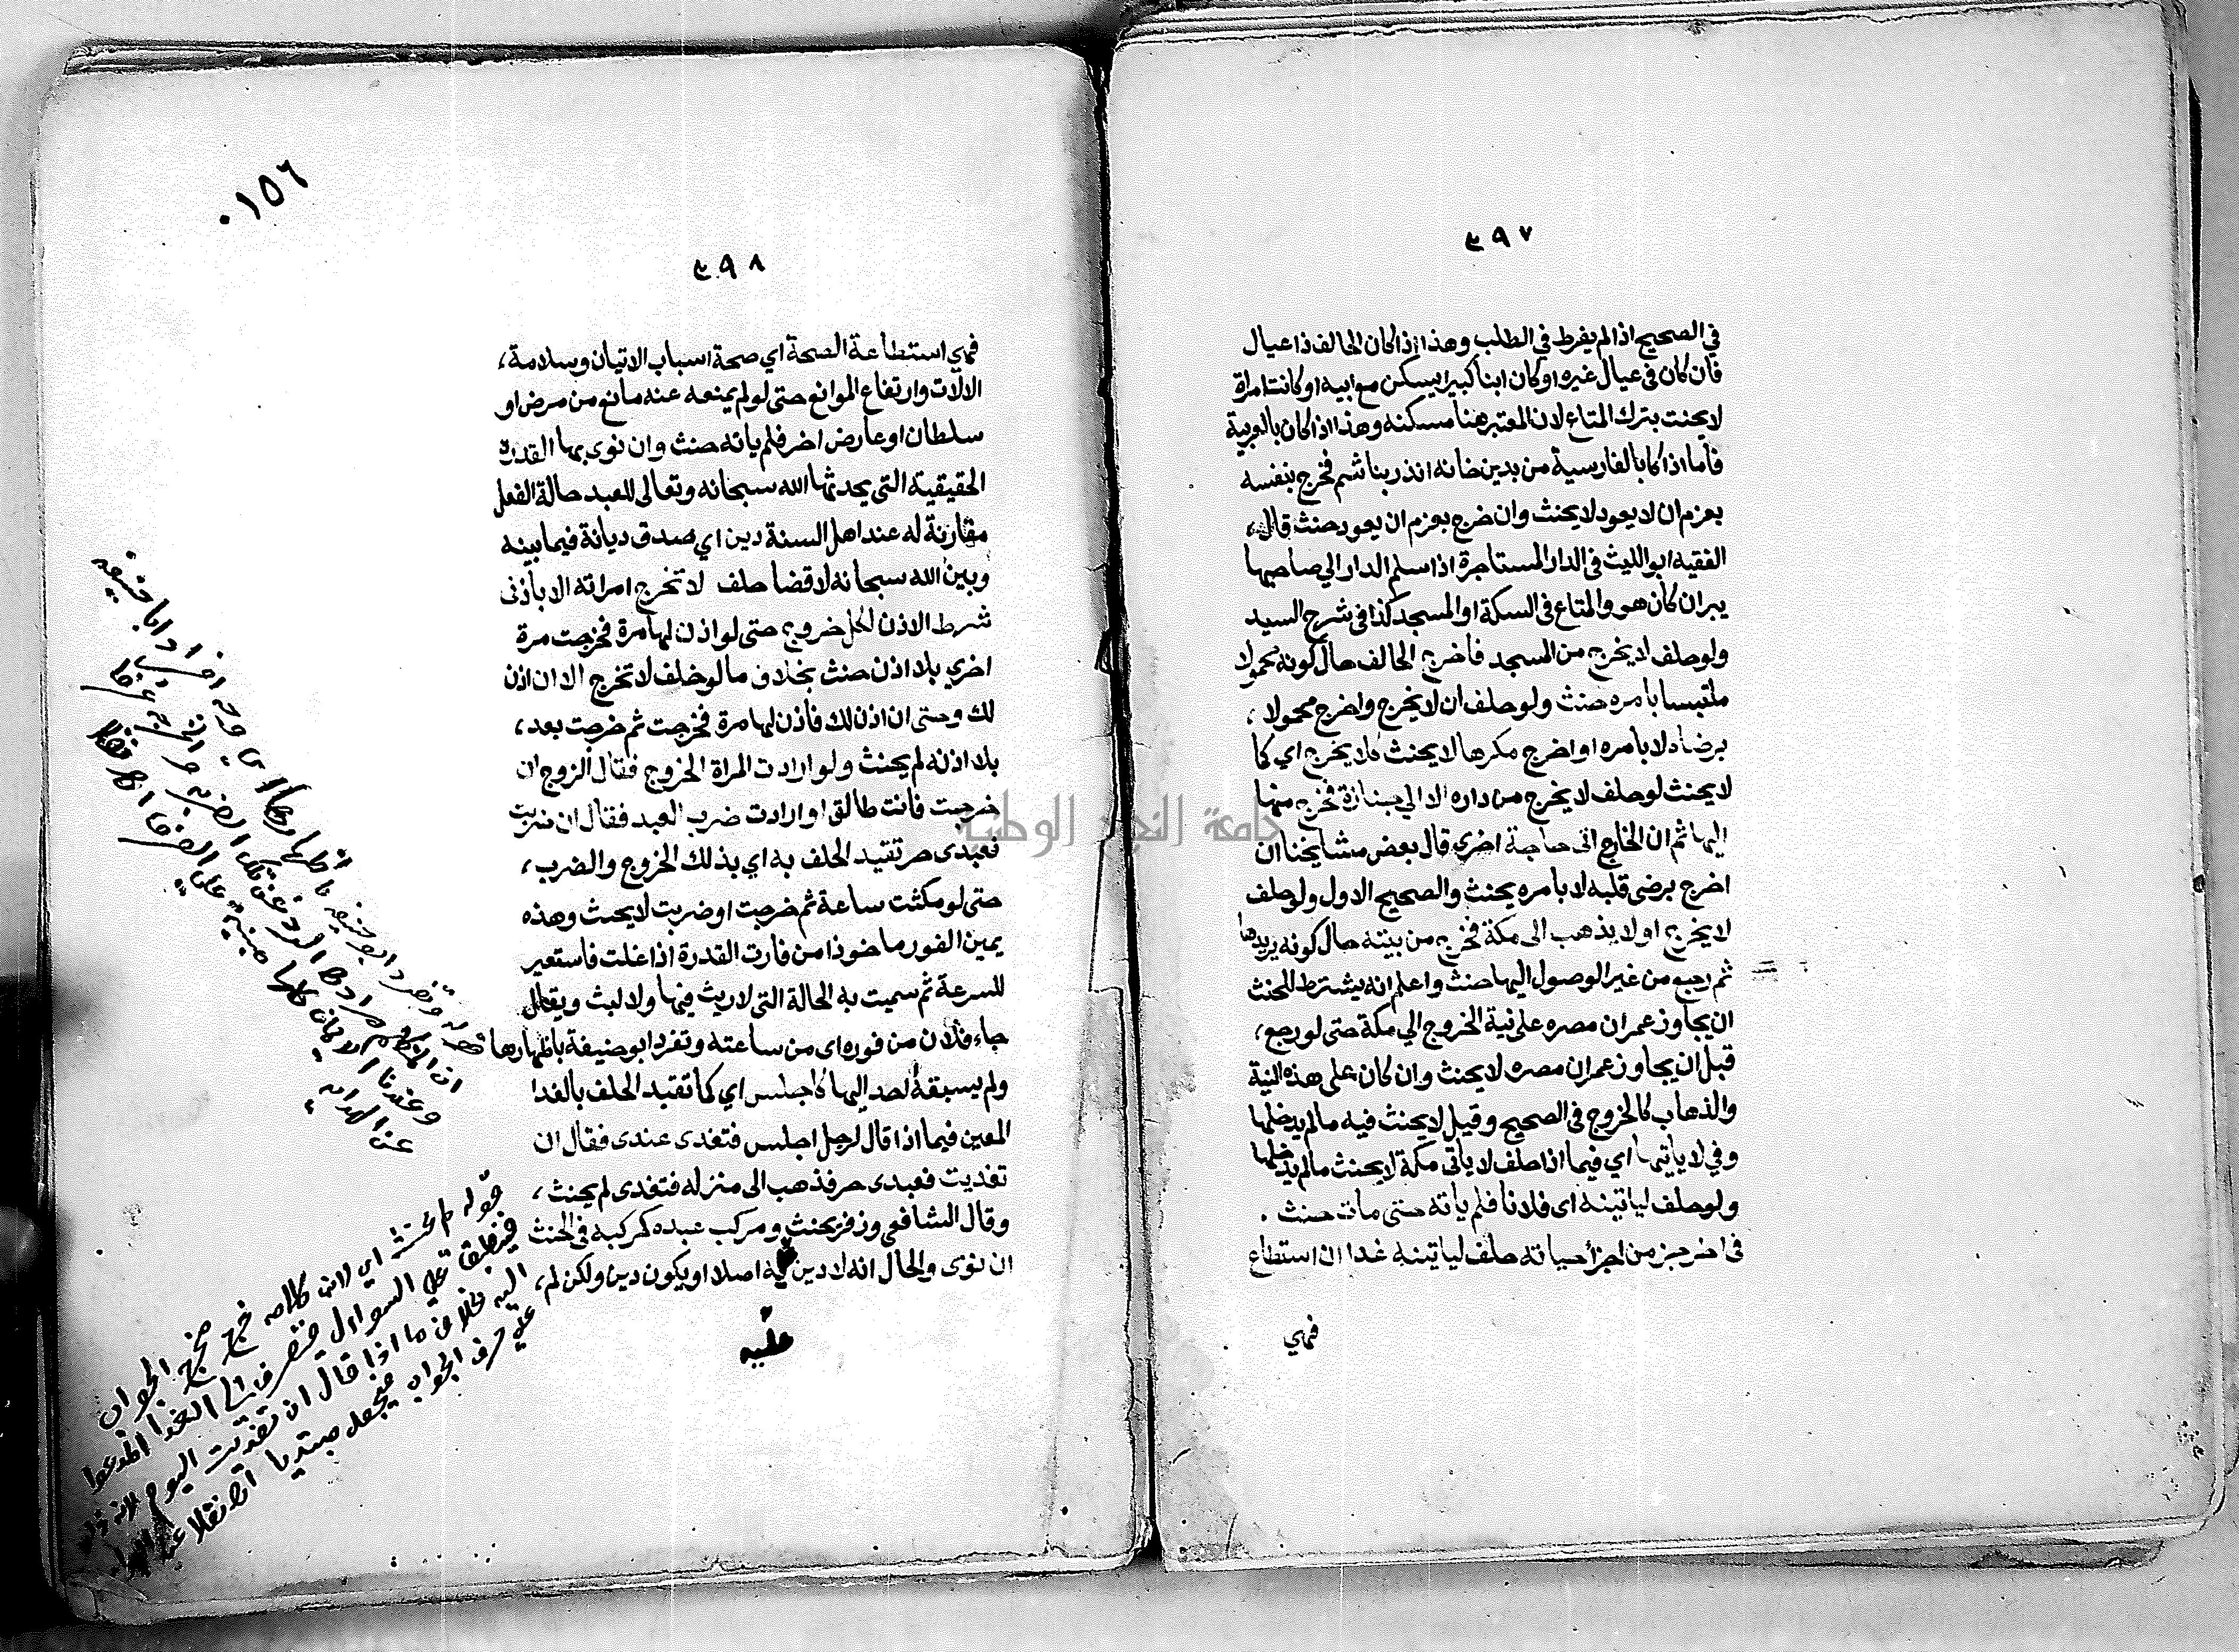 ٣٩٧
في الصحيح اذا لم يفرط في الطلب وهذا اذا كان الحالف ذا عيال
فان كان في عيال غيره او كان ابنا كبيرا يسكن مع ابيه او كانت امراة
لا يحنث بترك المتاع لان المعتبر هنا مسكنه وهذا اذا كان بالعربية
فاما اذا كا بالفارسية من بدين خانه اندر بناشم فخرج بنفسه
بعزم ان لا يعود لا يحنث وان خرج بعزم ان يعود حنث قال
الفقيه ابو الليث في الدار المستاجرة اذا سلم الدار الي صاحبها
يبر ان كان هو والمتاع في السكة او المسجد كذا في شرح السيد
ولو حلف لا يخرج من المسجد فاخرج الحالف حال كونه محمولا
ملتبسا بامره حنث ولو حلف ان لا يخرج واخرج محمولا ،
برضاه لا بامره او اخرج مكرها لا يحنث كلا يخرج اي كما
لا يحنث لو حلف لا يخرج من داره الا الي جنازة فخرج منها
اليها ثم ان الخارج اتى حاجة اخري قال بعض مشايخنا ان
اخرج برضى قلبه لا بامره يحنث والصحيح الاول ولو حلف
لا يخرج او لا يذهب الى مكة فخرج من بيته حال كونه يريدها
ثم رجع من غير الوصول اليها حنث واعلم انه يشترط للحنث
ان يجاوز عمران مصره على نية الخروج الي مكة حتى لو رجع ،
قبل ان يجاوز عمران مصره لا يحنث وان كان على هذه النية
والذهاب كالخروج في الصحيح وقيل لا يحنث فيه ما لم يدخلها
وفي لا ياتيها اي فيما اذا حلف لا ياتى مكة لا يحنث ما لم يدخلها
ولو حلف لياتينه اى فلانا فلم ياته حتى مات حنث .
في اخر جز من اجزأ حياته حلف لياتينه غدا ان استطاع
فهي
٠١٥٦
٣٩٨
فهي استطاعة الصحة اي صحة اسباب الاتيان وسلامة ،
الالات وارتفاع الموانع حتى لو لم يمنعه عنه مانع من مرض او
سلطان او عارض اخر فلم ياته حنث وان نوى بها القدرة
الحقيقية التي يحدثها الله سبحانه وتعالى للعبد حالة الفعل
مقارنة له عند اهل السنة دين اي صدق ديانة فيما بينه
وبين الله سبحانه لا قضا حلف لا تخرج امراته الا باذنى
شرط الاذن لكل خروج حتى لو اذن لها مرة فخرجت مرة
اخري بلا اذن حنث بخلاف ما لو حلف لا تخرج الا ان اذن
لك وحتى ان اذن لك فاذن لها مرة فخرجت ثم خرجت بعد ،
بلا اذنه لم يحنث ولو ارادت المراة الخروج فقال الزوج ان
خرجت فانت طالق او ارادت ضرب العبد فقال ان ضربت
فعبدى حر تقيد الحلف به اي بذلك الخروج والضرب ،
حتى لو مكثت ساعة ثم خرجت او ضربت لا يحنث وهذه
يمين الفور ماخوذا من فارت القدرة اذا غلت فاستعير
للسرعة ثم سميت به الحالة التى لا ريث فيها ولا لبث ويقال
جاء فلان من فوره اى من ساعته وتفرد ابو حنيفة باظهارها
ولم يسبقه احد اليها كاجلس اي كما تقيد الحلف بالغدا
المعين فيما اذا قال لرجل اجلس فتغدى عندى فقال ان
تغديت فعبدى حر فذهب الى منزله فتغدى لم يحنث ،
وقال الشافعي وزفر يحنث ومركب عبده كمركبه فى الحنث
ان نوى والحال انه لا دين عليه اصلا او يكون دين ولكن لم ،
عليه
قوله وتفرد ابو حنيفة باظهارها
عن الهدايه
قوله لم يحنث اي لان كلامه خرج مخرج الجواب
فينطبق على السوال فينصرف الى الغدا المدعو
اليه بخلاف ما اذا قال ان تغديت اليوم لانه زاد
على حرف الجواب فيجعل مبتديا
جامعة النجاح الوطنية